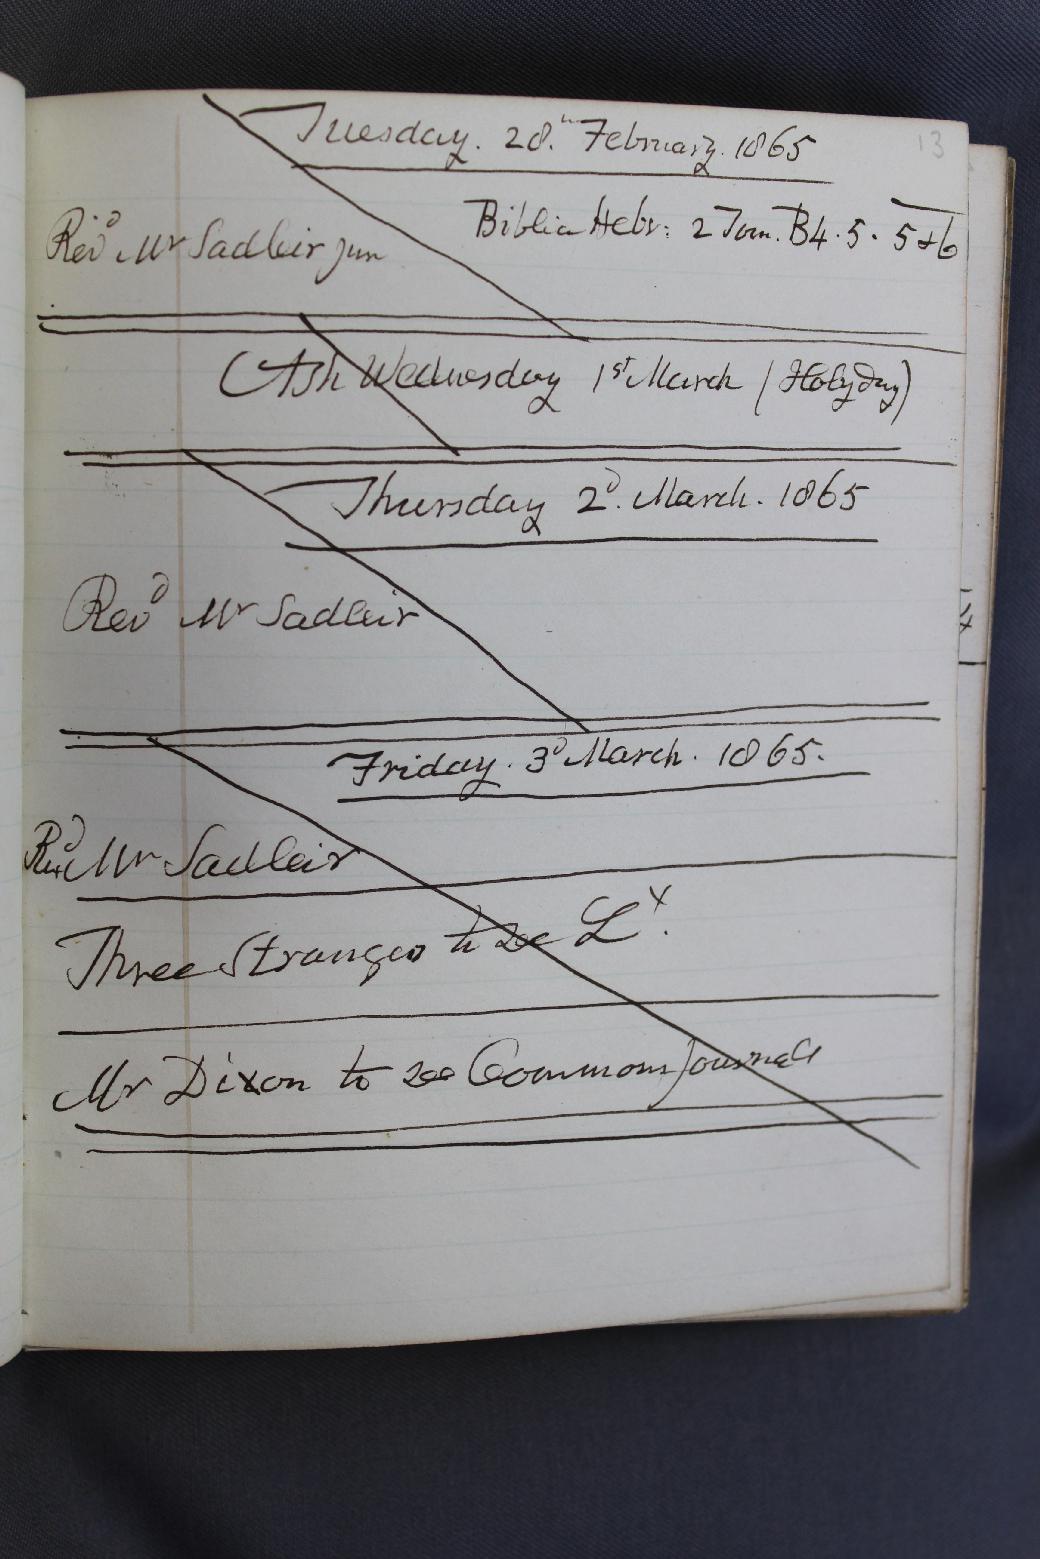 13
Tuesday. 28.th February. 1865
Biblia Hebr: 2 Tom. B4.5. 5+6
Revd Mr Sadleir jun
Ash Wednesday 1st March (Holyday)
Thursday 2d. March. 1865
Revd Mr Sadleir
4
Friday. 3d March. 1865.
Revd Mr Sadleir
Three Strangers to see Ly.
Mr Dixon to see Commons Journals